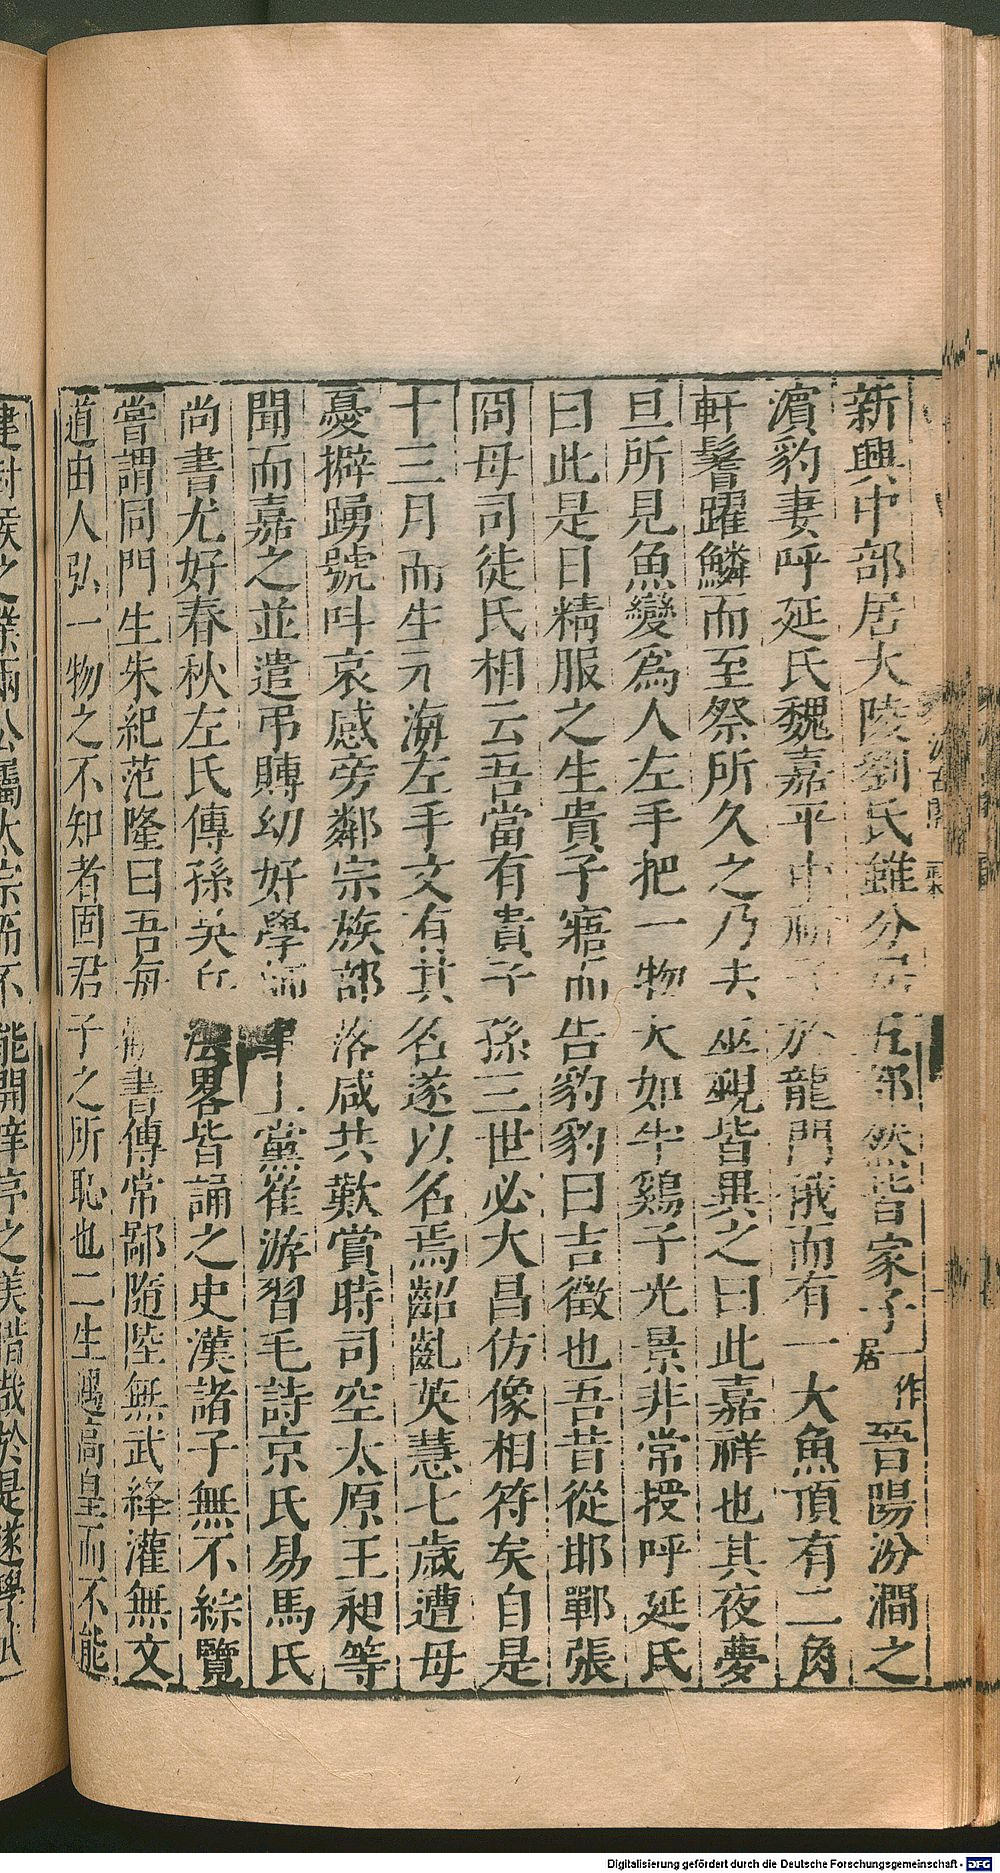 新興中部居大陵劉氏雖分居五部然皆家于一作居晉陽汾澗之
濱豹妻呼延氏魏嘉平中祈子於龍門俄而有一大魚頂有二角
軒鬐躍鱗而至祭所久之乃去巫覡皆異之曰此嘉祥也其夜夢
旦所見魚變爲人左手把一物大如半鷄子光景非常授呼延氏
曰此是日精服之生貴子寤而告豹豹曰吉徵也吾昔從邯鄲張
冏母司徒氏相云吾當有貴子孫三世必大昌仿像相符矣自是
十三月而生元海左手文有其名遂以名焉齠齔英慧七歲遭母
憂擗踴號呌哀感旁鄰宗族部落咸共歎賞時司空太原王昶等
聞而嘉之並遣弔賻幼好學師事上黨崔游習毛詩京氏易馬氏
尚書尤好春秋左氏傳孫吳兵法畧皆誦之史漢諸子無不綜覽
嘗謂同門生朱紀范隆曰吾每觀書傳常鄙隨陸無武絳灌無文
道由人弘一物之不知者固君子之所恥也二生遇高皇而不能
建封侯之業兩公屬太宗而不能開庠序之美惜哉於是遂學武
Digitalisierung gefördert durch die Deutsche Forschungsgemeinschaft - DFG